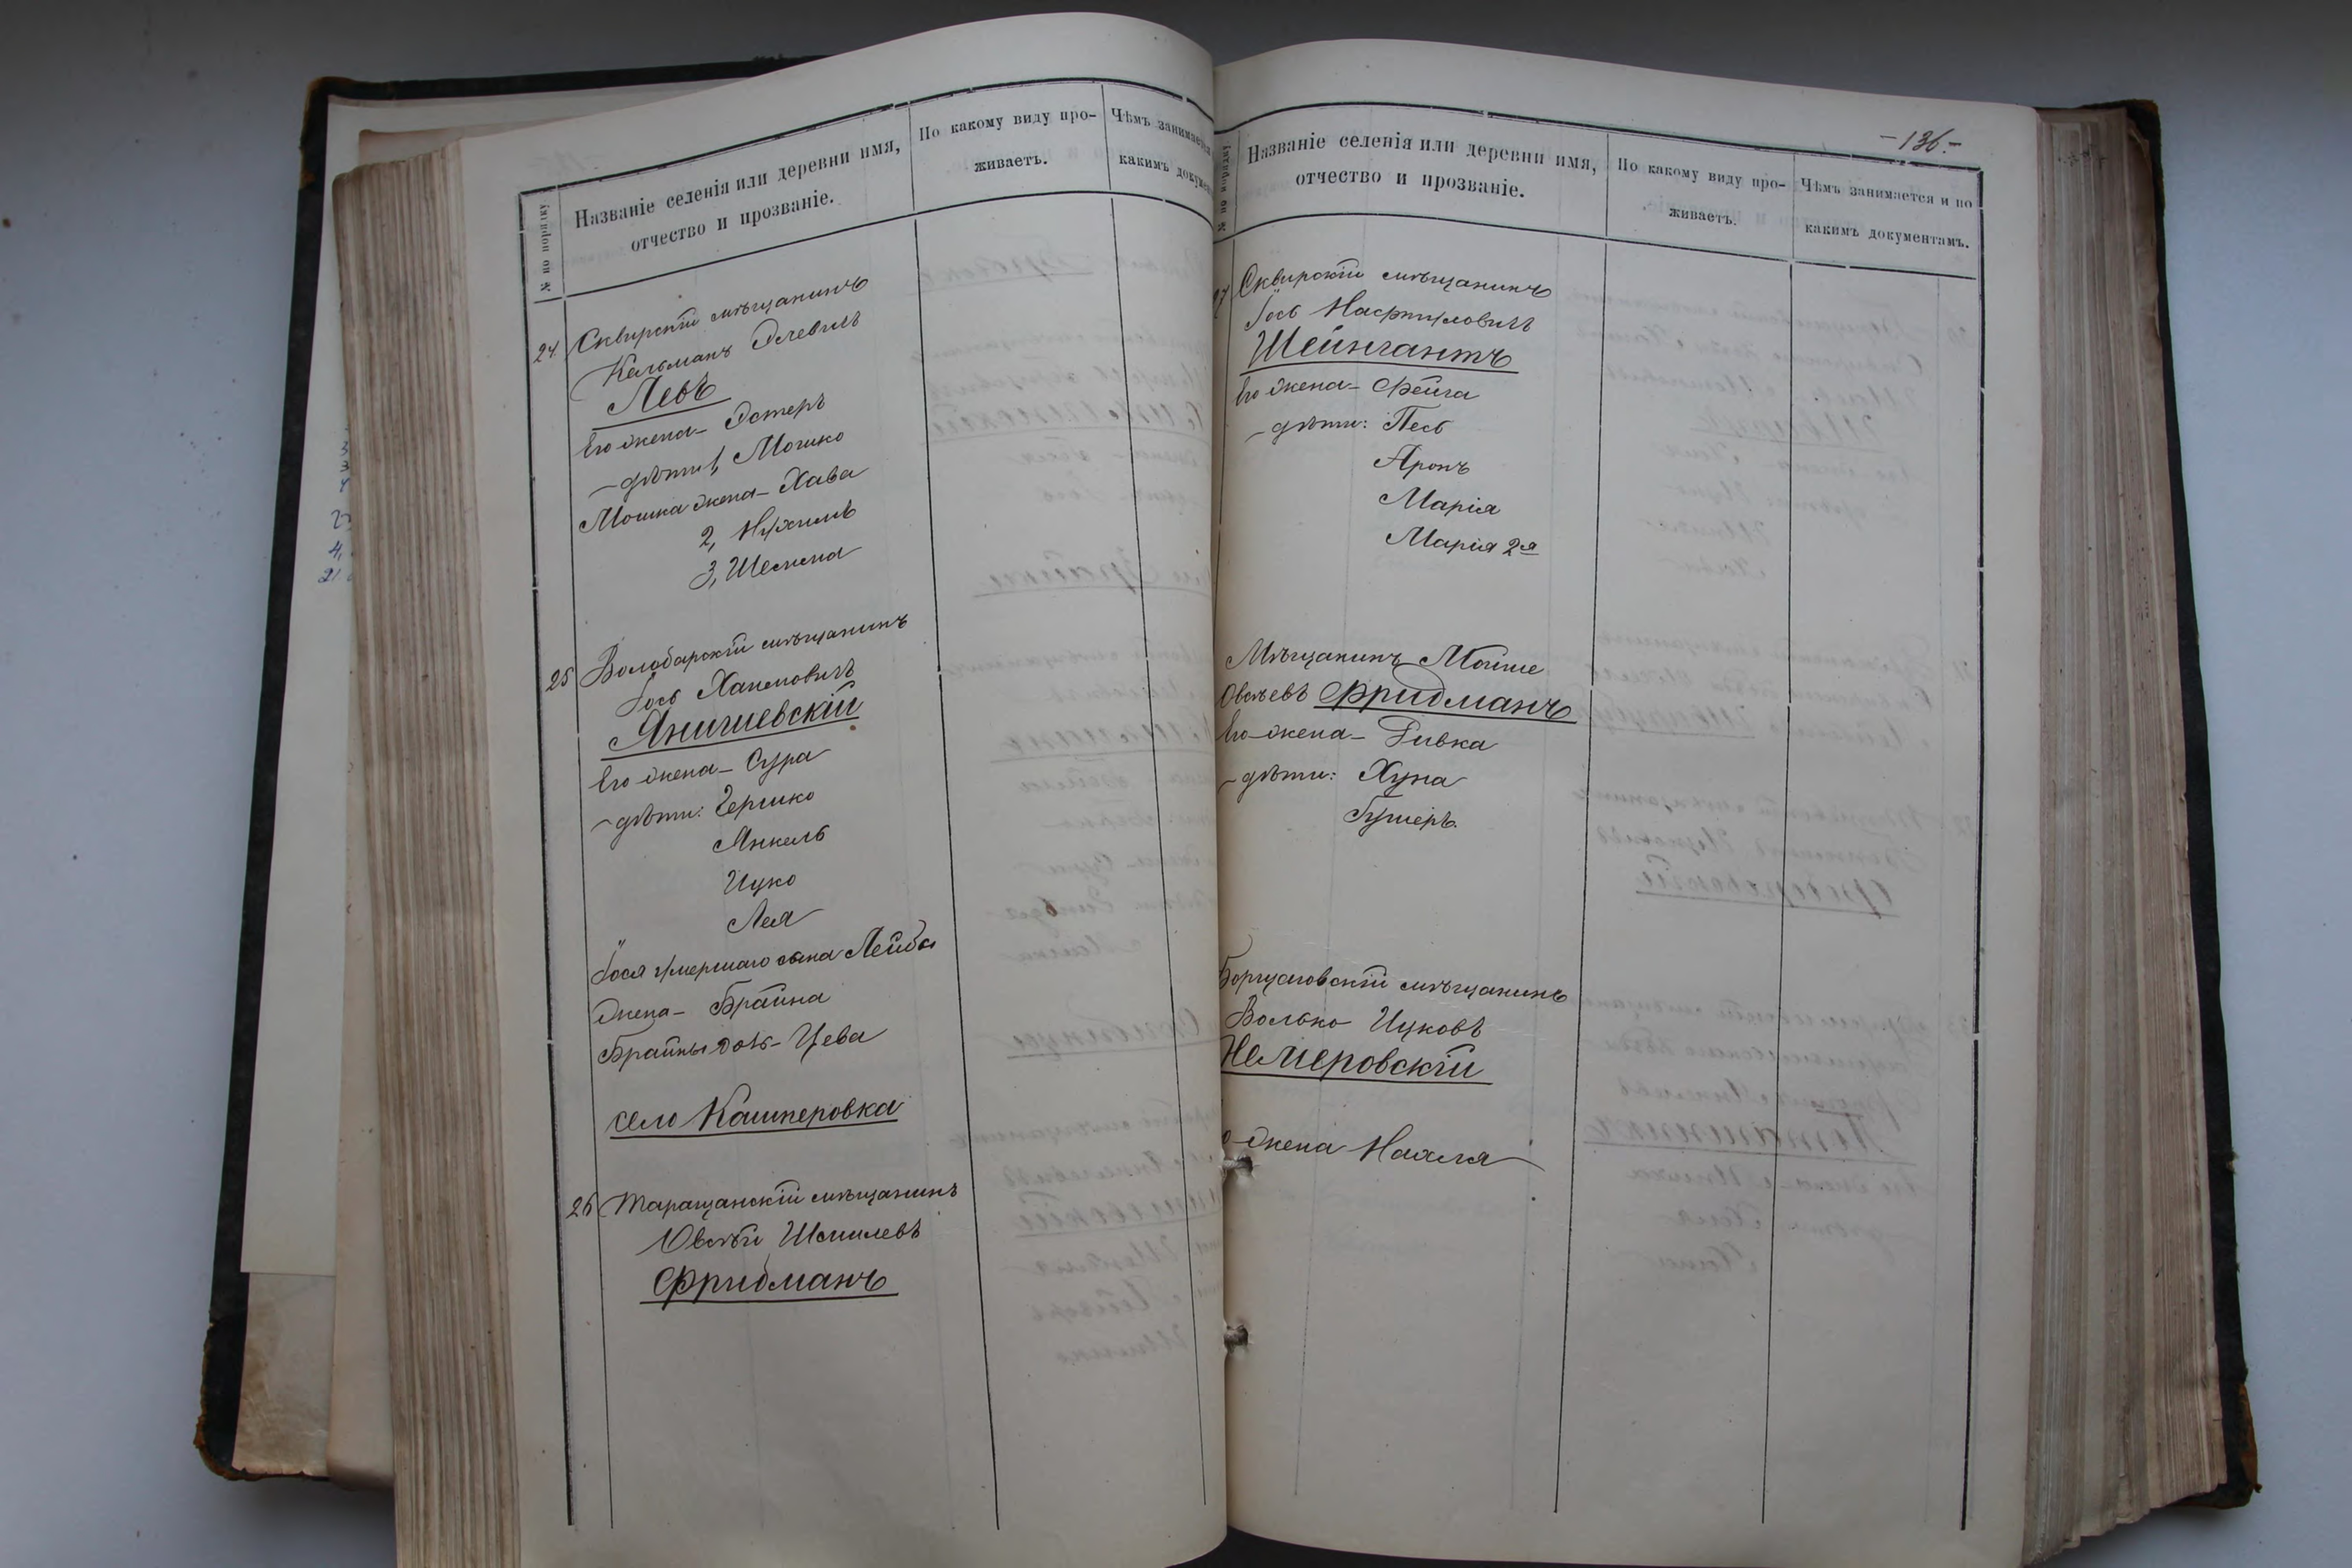 № по порядку
Названіе селенія или деревни имя,
отчество и прозваніе.
По какому виду про-
живаетъ.
Чѣмъ занимается
какимъ докумен
24 Сквирскій мѣщанинъ
Кальманъ Элевичъ
Левъ
Его жена – Эстеръ
– дѣти 1, Мошко
Мошка жена – Хава
2, Нухимъ
3, Шелима
25 Володарскій мѣщанинъ
Іось Хаимовичъ
Янишевскій
Его жена – Сура
– дѣти: Гершко
Янкель
Ицко
Лея
Іося умершаго сына Лейбы
жена – Брайна
Брайны дочь – Цева
село Кашперовка
26 Таращанскій мѣщанинъ
Овсѣй Шмилевъ
Фридманъ
– 136. –
№ по порядку
Названіе селенія или деревни имя,
отчество и прозваніе.
По какому виду про-
живаетъ.
Чѣмъ занимается и по
какимъ документамъ.
27 Сквирскій мѣщанинъ
Іось Нафтуловичъ
Шейнгантъ
Его жена – Фейга
– дѣти: Песь
Аронъ
Марія
Марія 2я
Мѣщанинъ Мойше
Овсѣевъ Фридманъ
Его жена – Ривка
– дѣти: Хуна
Гушеръ.
Борщаговскій мѣщанинъ
Волько Ицковъ
Немировскій
жена Нахля